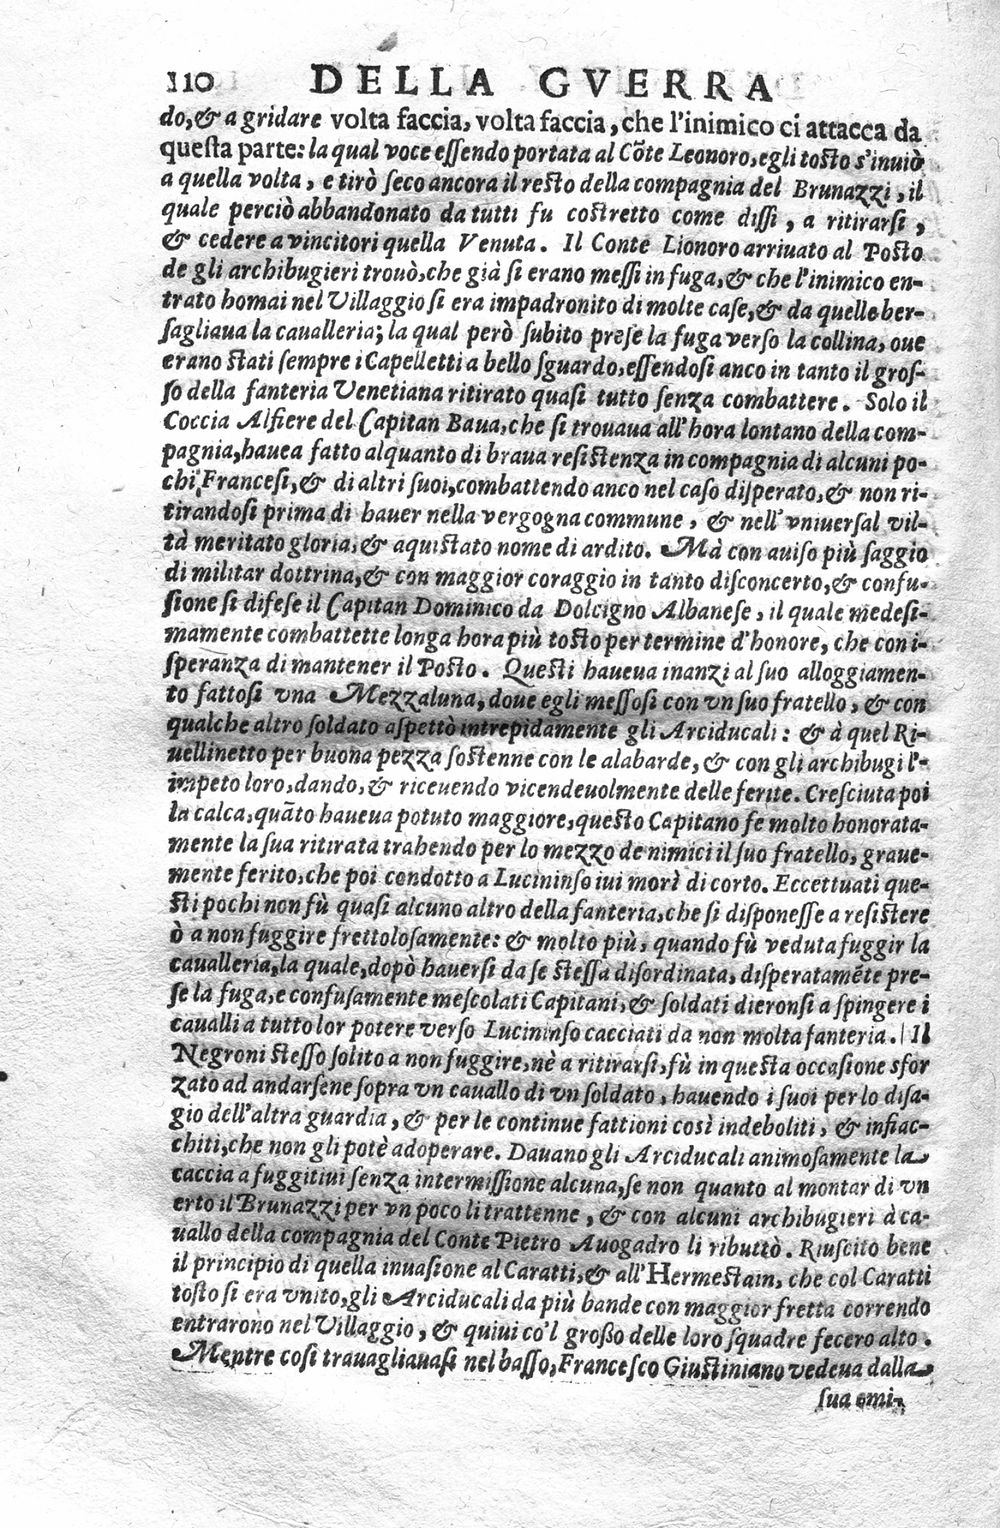 110 DELLA GVERRA
do, & a gridare volta faccia, volta faccia, che l'inimico ci attacca da
questa parte: la qual voce essendo portata al Cõte Leonoro, egli tosto s'inuiò
a quella volta, e tirò seco ancora il resto della compagnia del Brunazzi, il
quale perciò abbandonato da tutti fu costretto come dissi, a ritirarsi,
& cedere a vincitori quella Venuta. Il Conte Lionoro arriuato al Posto
de gli archibugieri trouò, che già si erano messi in fuga, & che l'inimico en-
trato homai nel Villaggio si era impadronito di molte case, & da quelle ber-
sagliaua la caualleria; la qual però subito prese la fuga verso la collina, oue
erano stati sempre i Capelletti a bello sguardo, essendosi anco in tanto il gros-
so della fanteria Venetiana ritirato quasi tutto senza combattere. Solo il
Coccia Alfiere del Capitan Baua, che si trouaua all'hora lontano della com-
pagnia, hauea fatto alquanto di braua resistenza in compagnia di alcuni po-
chi Francesi, & di altri suoi, combattendo anco nel caso disperato, & non ri-
tirandosi prima di hauer nella vergogna commune, & nell'vniuersal vil-
tà meritato gloria, & aquistato nome di ardito. Mà con auiso più saggio
di militar dottrina, & con maggior coraggio in tanto disconcerto, & confu-
sione si difese il Capitan Dominico da Dolcigno Albanese, il quale medesi-
mamente combattette longa hora più tosto per termine d'honore, che con i-
speranza di mantener il Posto. Questi haueua inanzi al suo alloggiamen-
to fattosi vna Mezzaluna, doue egli messosi con vn suo fratello, & con
qualche altro soldato aspettò intrepidamente gli Arciducali: & à quel Ri-
uellinetto per buona pezza sostenne con le alabarde, & con gli archibugi l'-
impeto loro, dando, & riceuendo vicendeuolmente delle ferite. Cresciuta poi
la calca, quãto haueua potuto maggiore, questo Capitano fe molto honorata-
mente la sua ritirata trahendo per lo mezzo de nimici il suo fratello, graue-
mente ferito, che poi condotto a Lucininso iui morì di corto. Eccettuati que-
sti pochi non fù quasi alcuno altro della fanteria, che si disponesse a resistere
ò a non fuggire frettolosamente: & molto più, quando fù veduta fuggir la
caualleria, la quale, dopò hauersi da se stessa disordinata, disperatamẽte pre-
se la fuga, e confusamente mescolati Capitani, & soldati dieronsi a spingere i
caualli a tutto lor potere verso Lucininso cacciati da non molta fanteria. Il
Negroni stesso solito a non fuggire, nè a ritirarsi, fù in questa occasione sfor
zato ad andarsene sopra vn cauallo di vn soldato, hauendo i suoi per lo disa-
gio dell'altra guardia, & per le continue fattioni così indeboliti, & infiac-
chiti, che non gli potè adoperare. Dauano gli Arciducali animosamente la
caccia a fuggitiui senza intermissione alcuna, se non quanto al montar di vn
erto il Brunazzi per vn poco li trattenne, & con alcuni archibugieri à ca-
uallo della compagnia del Conte Pietro Auogadro li ributtò. Riuscito bene
il principio di quella inuasione al Caratti, & all'Hermestain, che col Caratti
tosto si era vnito, gli Arciducali da più bande con maggior fretta correndo
entrarono nel Villaggio, & quiui co'l großo delle loro squadre fecero alto.
Mentre così trauagliauasi nel basso, Francesco Giustiniano vedeua dalla
sua emi-